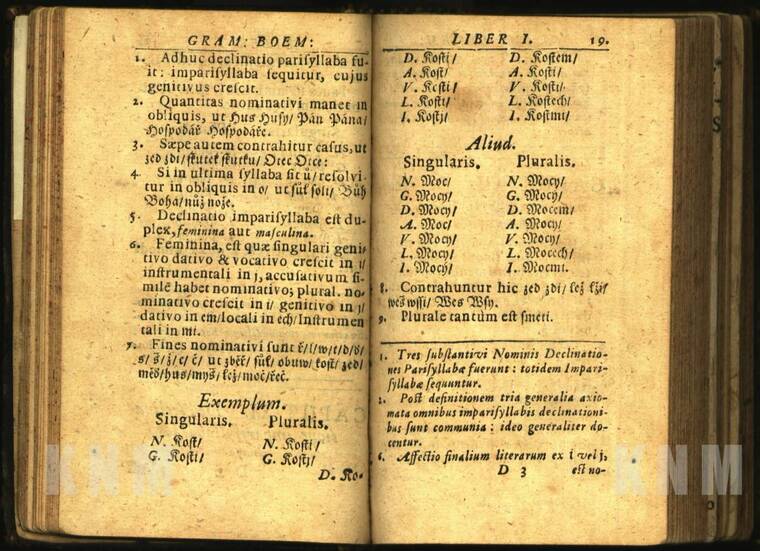 GRAM: BOEM:
1. Adhuc declinatio parisyllaba fu-
it: imparisyllaba sequitur, cujus
genitivus crescit.
2. Quantitas nominativi manet in
obliquis, ut Hus Husy/ Pán Pána/
Hospodář Hospodáře.
3. Sæpe autem contrahitur casus, ut
zed zdi/ skutek skutku/ Otec Otce:
4. Si in ultima syllaba sit ů/ resolvi-
tur in obliquis in o/ ut sůl soli/ Bůh
Boha/ nůž nože.
5. Declinatio imparisyllaba est du-
plex, feminina aut masculina.
6. Feminina, est quæ singulari geni-
tivo dativo & vocativo crescit in i/
instrumentali in j, accusativum si-
mile habet nominativo; plural. no-
minativo crescit in i/ genitivo in j/
dativo in em/ locali in ech/ Instrumen-
tali in mi.
7. Fines nominativi sunt
ut zběř/ sůl/ obuw/ kost/ zed/
měd/ hus/ myš/ lež/ moc/ řeč.
Exemplum.
Singularis. Pluralis.
N. Kost/ N. Kosti/
G. Kosti/ G. Kostj/
D. Ko-
LIBER I. 19.
D. Kosti/ D. Kostem/
A. Kost/ A. Kosti/
V. Kosti/ V. Kosti/
L. Kosti/ L. Kostech/
I. Kostj/ I. Kostmi/
Aliud.
Singularis. Pluralis.
N. Moc/ N. Mocy/
G. Mocy/ G. Mocý/
D. Mocy/ D. Mocem/
A. Moc/ A. Mocy/
V. Mocy/ V. Mocy/
L. Mocy/ L. Mocech/
I. Mocý/ I. Mocmi.
8. Contrahuntur hic zed zdi/ lež lži/
weš wssi/ Wes Wsy.
9. Plurale tantum est smeti.
1. Tres substantivi Nominis Declinatio-
nes Parisyllabæ fuerunt: totidem Impari-
syllabæ sequuntur.
2. Post definitionem tria generalia axio-
mata omnibus imparisyllabis declinationi-
bus sunt communia: ideo generaliter do-
centur.
6. Affectio finalium literarum ex i vel j,
D 3 est no-
KNM
KNM